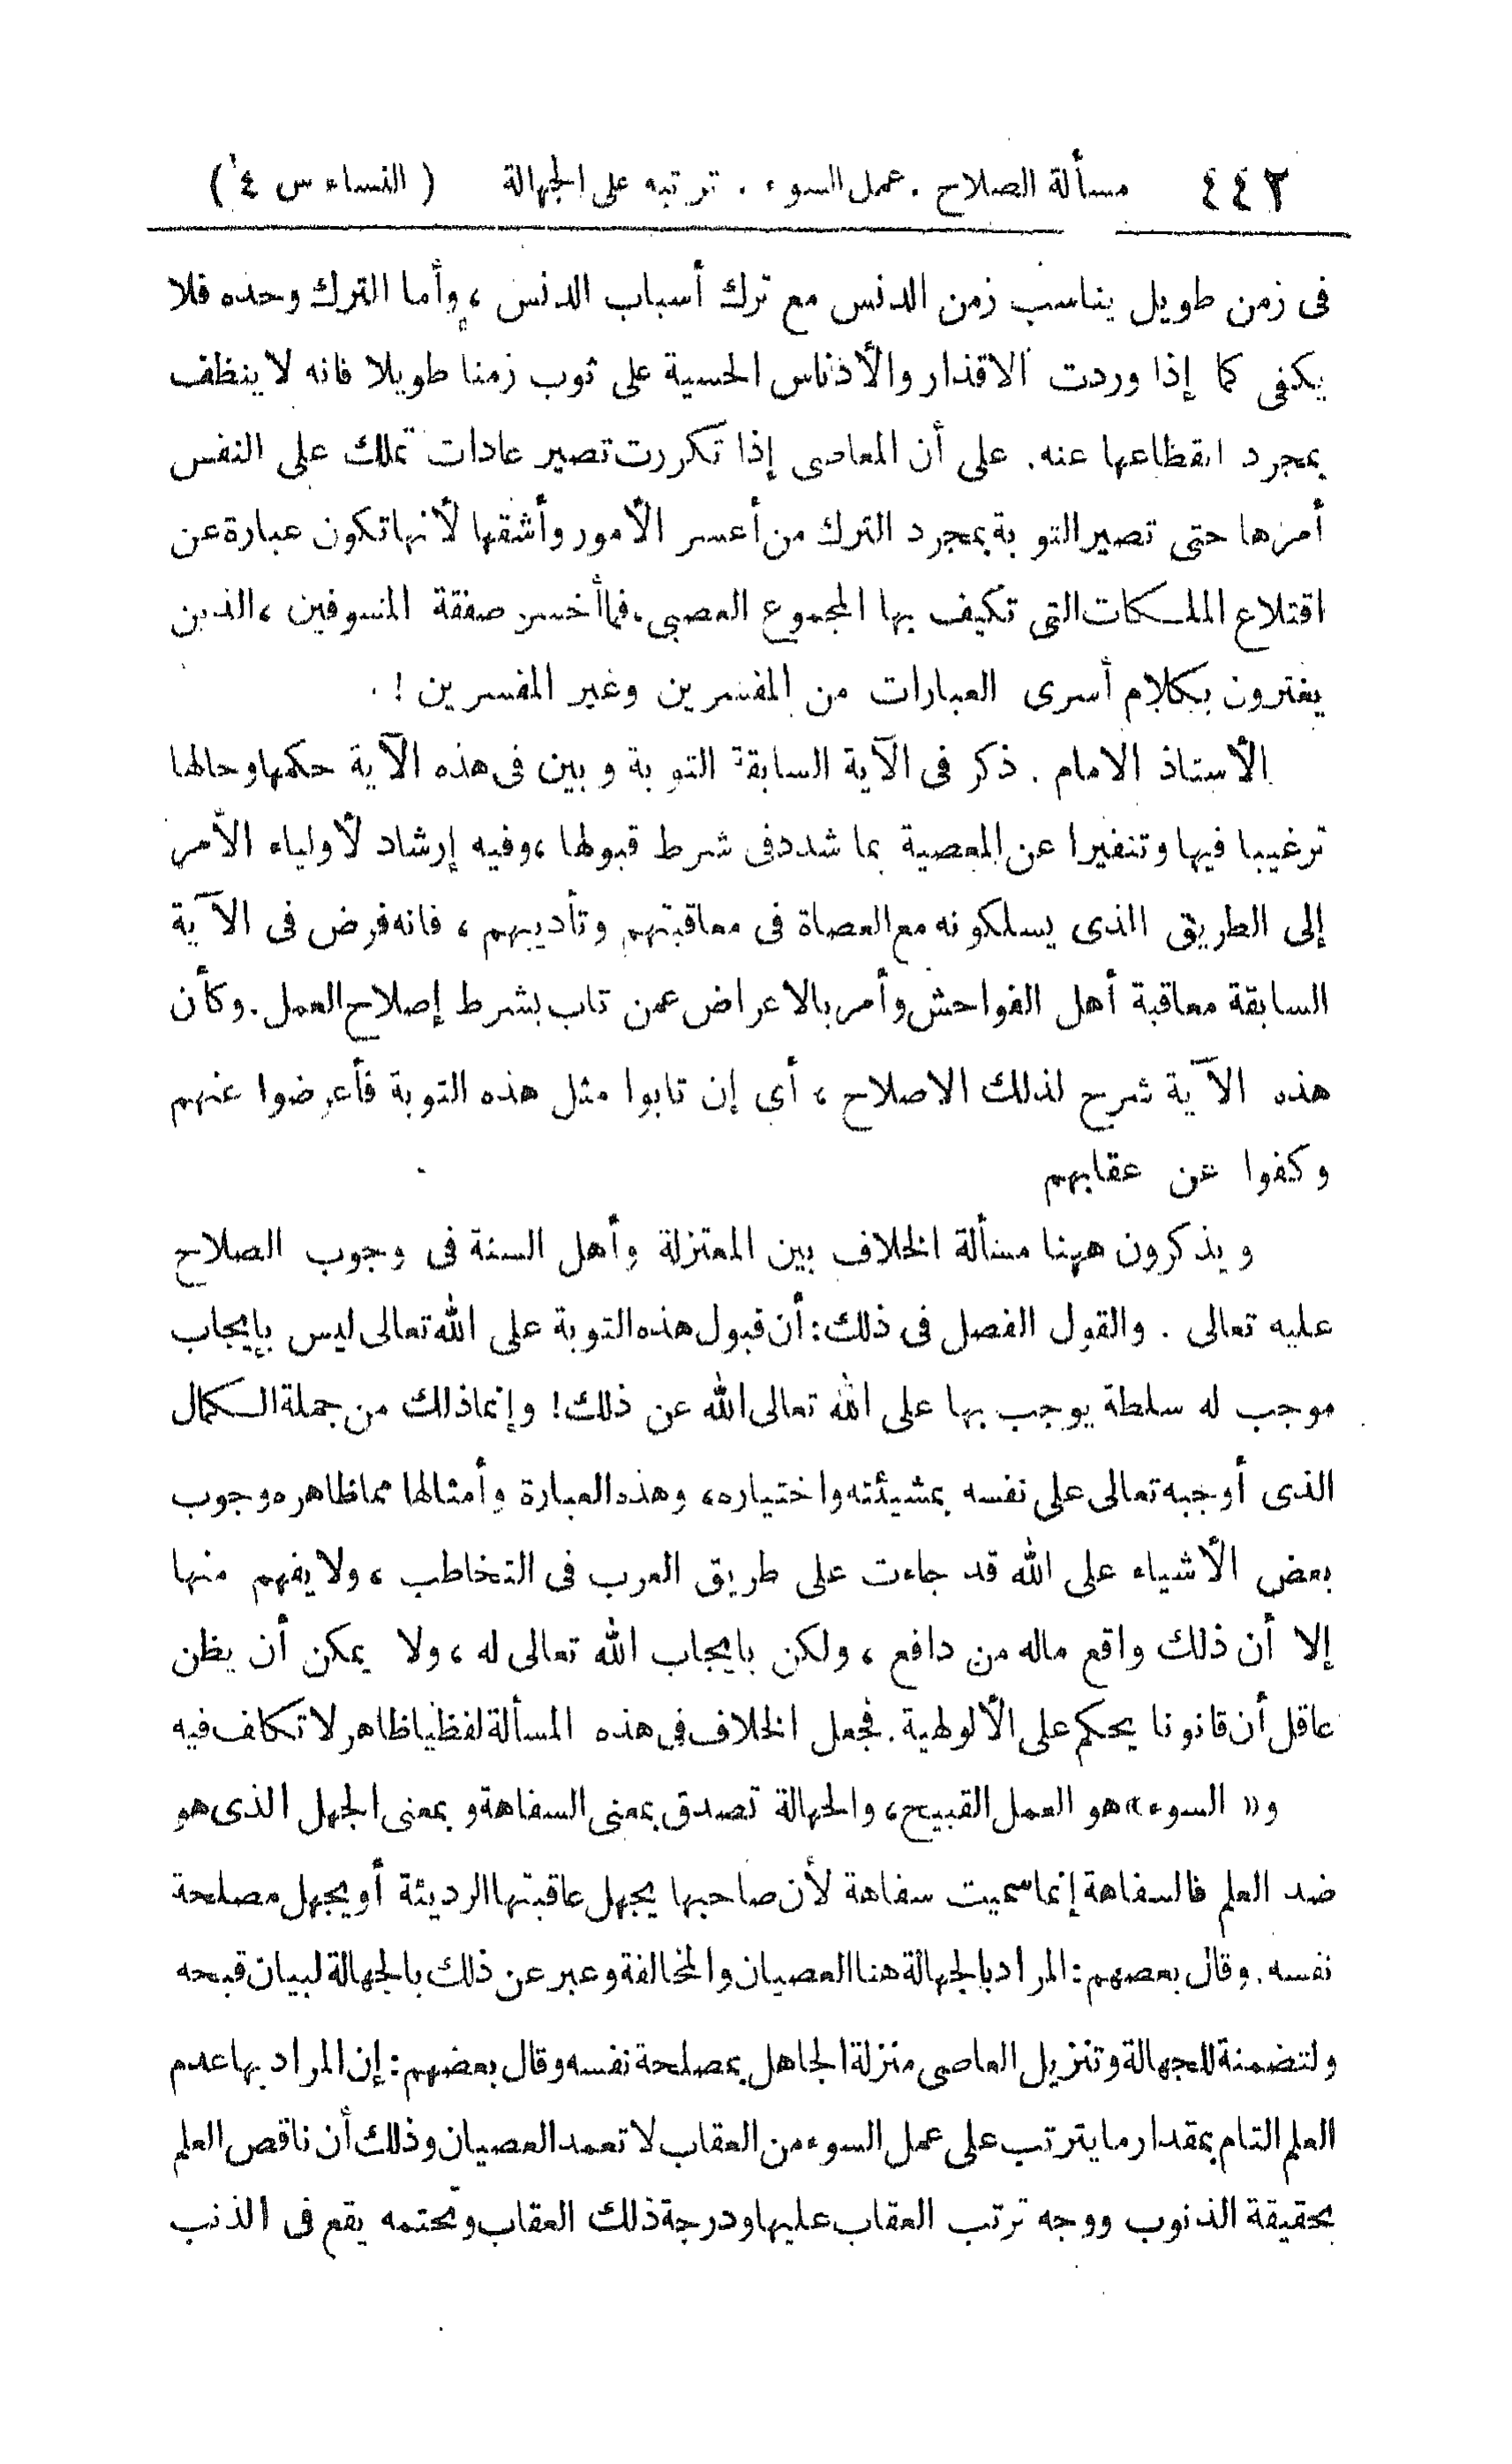 ٤٤٢ مسألة الصلاح . عمل السوء . ترتبه على الجهالة ( النساء س ٤ )
فى زمن طويل يناسب زمن الدنس مع ترك أسباب الدنس ، وأما الترك وحده فلا
يكفى كما إذا وردت الاقذار والأدناس الحسية على ثوب زمنا طويلا فانه لا ينظف
بمجرد انقطاعها عنه . على أن المعاصى إذا تكررت تصير عادات تملك على النفس
أمرها حتى تصير التوبة بمجرد الترك من أعسر الأمور وأشقها لأنها تكون عبارة عن
اقتلاع الملكات التى تكيف بها المجموع العصبى ، فما أخسر صفقة المسوفين ، الذين
يغترون بكلام أسرى العبارات من المفسرين وغير المفسرين !
الأستاذ الامام . ذكر فى الآية السابقة التوبة وبين فى هذه الآية حكمها وحالها
ترغيبا فيها وتنفيرا عن المعصية بما شدد فى شرط قبولها ، وفيه إرشاد لأولياء الأمر
إلى الطريق الذى يسلكونه مع العصاة فى معاقبتهم وتأديبهم ، فانه فرض فى الآية
السابقة معاقبة أهل الفواحش وأمر بالاعراض عمن تاب بشرط إصلاح العمل . وكأن
هذه الآية شرح لذلك الاصلاح ، أى إن تابوا مثل هذه التوبة فأعرضوا عنهم
وكفوا عن عقابهم
ويذكرون ههنا مسألة الخلاف بين المعتزلة وأهل السنة فى وجوب الصلاح
عليه تعالى . والقول الفصل فى ذلك : أن قبول هذه التوبة على الله تعالى ليس بإيجاب
موجب له سلطة يوجب بها على الله تعالى الله عن ذلك ! وإنما ذلك من جملة الكمال
الذى أوجبه تعالى على نفسه بمشيئته واختياره ، وهذه العبارة وأمثالها مما ظاهره وجوب
بعض الأشياء على الله قد جاءت على طريق العرب فى التخاطب ، ولا يفهم منها
إلا أن ذلك واقع ماله من دافع ، ولكن بايجاب الله تعالى له ، ولا يمكن أن يظن
عاقل أن قانونا يحكم على الألوهية . فجعل الخلاف فى هذه المسألة لفظيا ظاهر لا تكلف فيه
و« السوء » هو العمل القبيح ، والجهالة تصدق بمعنى السفاهة وبمعنى الجهل الذى هو
ضد العلم فالسفاهة إنما سميت سفاهة لأن صاحبها يجهل عاقبتها الرديئة أو يجهل مصلحة
نفسه . وقال بعضهم : المراد بالجهالة هنا العصيان والمخالفة وعبر عن ذلك بالجهالة لبيان قبحه
ولتضمنة للجهالة وتنزيل العاصى منزلة الجاهل بمصلحة نفسه وقال بعضهم : إن المراد بها عدم
العلم التام بمقدار ما يترتب على عمل السوء من العقاب لا تعمد العصيان وذلك أن ناقص العلم
بحقيقة الذنوب ووجه ترتب العقاب عليها ودرجة ذلك العقاب وتحتمه يقع فى الذنب